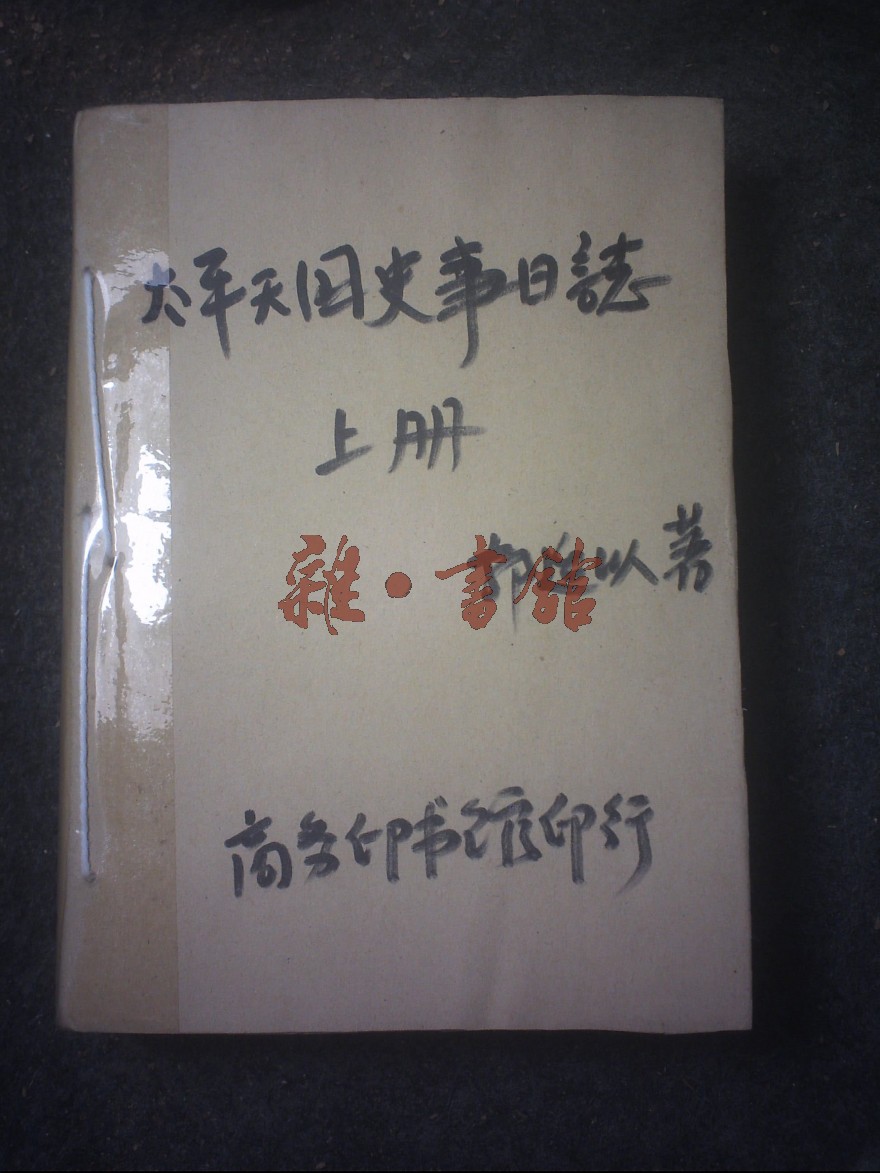 太平天国史事日誌
上册
郭廷以著
雜·書館
商务印书馆印行